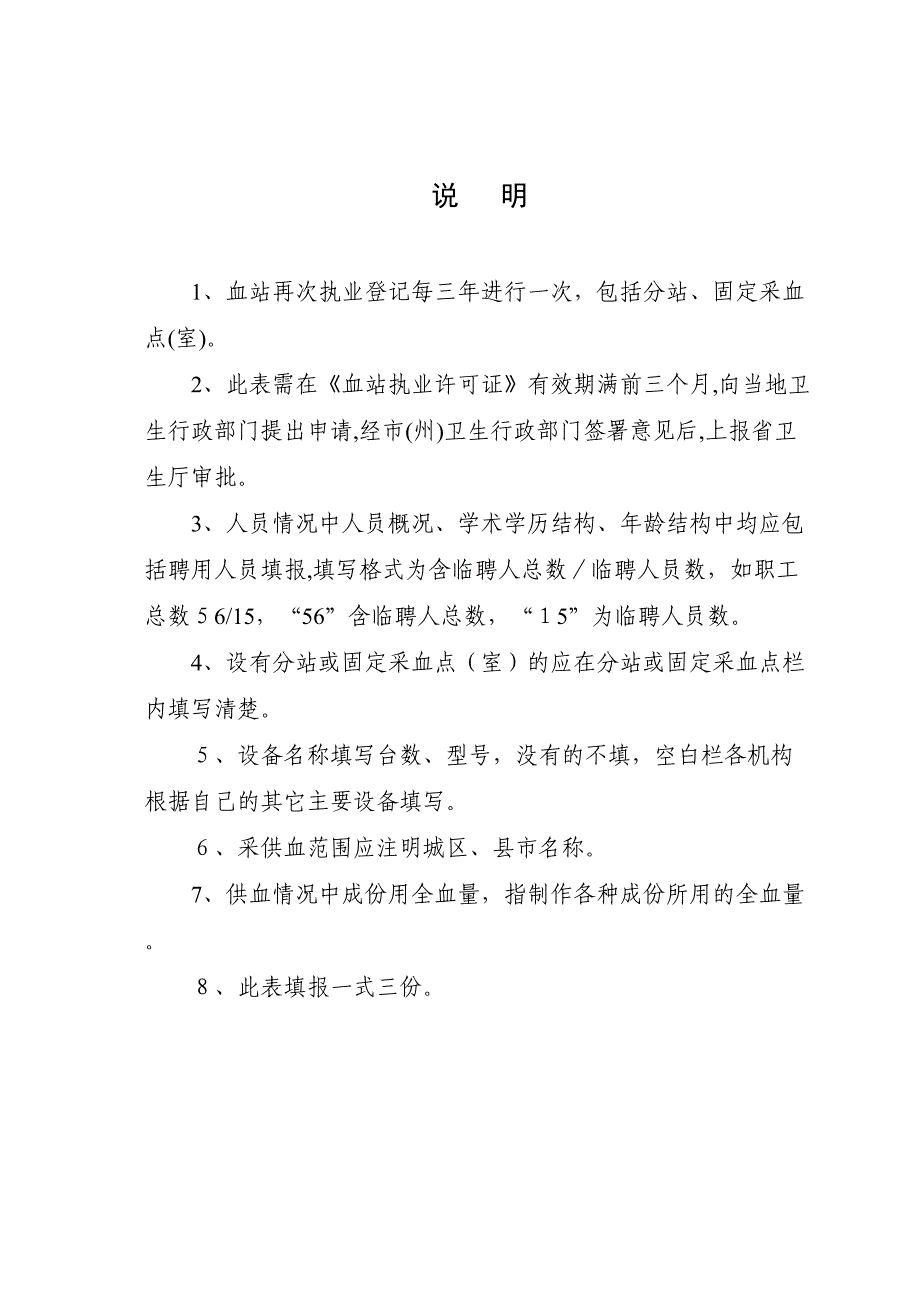 说 明
1、血站再次执业登记每三年进行一次，包括分站、固定采血
点(室)。
2、此表需在《血站执业许可证》有效期满前三个月,向当地卫
生行政部门提出申请,经市(州)卫生行政部门签署意见后,上报省卫
生厅审批。
3、人员情况中人员概况、学术学历结构、年龄结构中均应包
括聘用人员填报,填写格式为含临聘人总数／临聘人员数，如职工
总数５6/15，“56”含临聘人总数，“１5”为临聘人员数。
4、设有分站或固定采血点（室）的应在分站或固定采血点栏
内填写清楚。
５、设备名称填写台数、型号，没有的不填，空白栏各机构
根据自己的其它主要设备填写。
６、采供血范围应注明城区、县市名称。
7、供血情况中成份用全血量，指制作各种成份所用的全血量
。
８、此表填报一式三份。